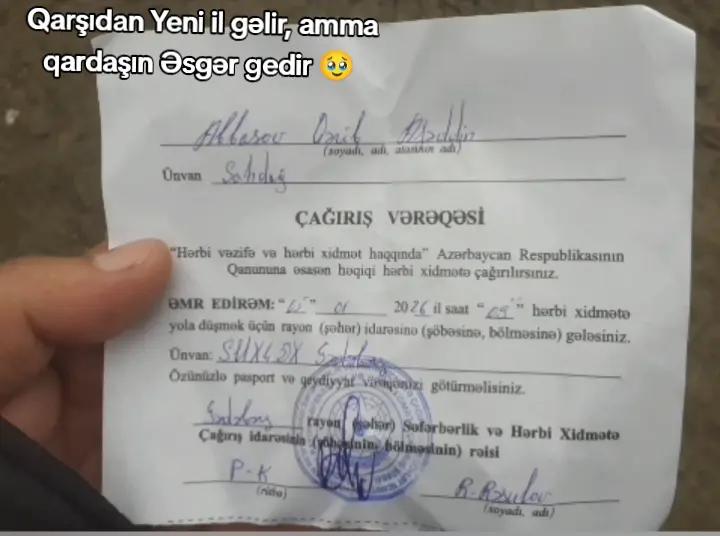 Qarşıdan Yeni il gəlir, amma
qardaşın Əsgər gedir 🥹
Abbasov
(soyadı, adı, atasının adı)
Ünvan
ÇAĞIRIŞ VƏRƏQƏSİ
"Hərbi vəzifə və hərbi xidmət haqqında" Azərbaycan Respublikasının
Qanununa əsasən həqiqi hərbi xidmətə çağırılırsınız.
ƏMR EDİRƏM: " " 01 2026 il saat " " hərbi xidmətə
yola düşmək üçün rayon (şəhər) idarəsinə (şöbəsinə, bölməsinə) gələsiniz.
Ünvan:
Özünüzlə pasport və qeydiyyat vərəqənizi götürməlisiniz.
rayon (şəhər) Səfərbərlik və Hərbi Xidmətə
Çağırış idarəsinin (şöbəsinin, bölməsinin) rəisi
P-K
(rütbə)
R. Rəsulov
(soyadı, adı)